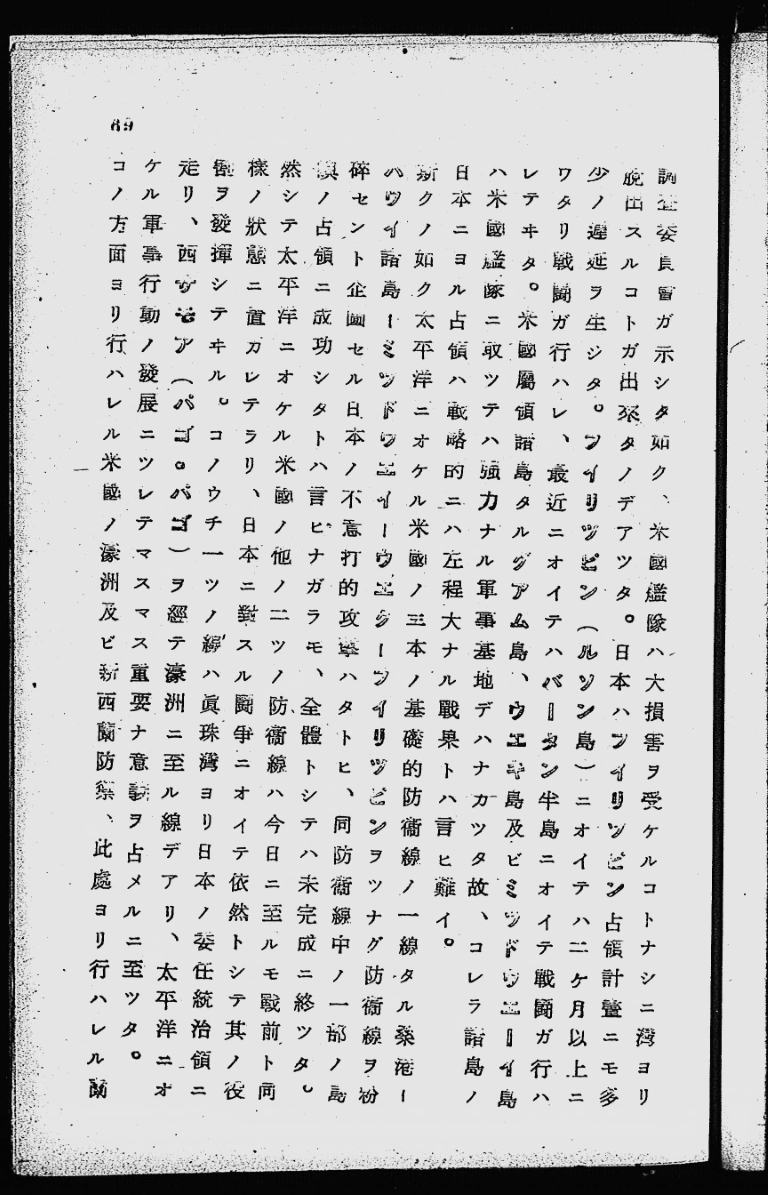 69
調査委員會ガ示シタ如ク、米國艦隊ハ大損害ヲ受ケルコトナシニ灣ヨリ
脫出スルコトガ出來タノデアツタ。日本ハフイリツピン占領計畫ニモ多
少ノ遲延ヲ生ジタ。フイリツピン（ルソン島）ニオイテハ二ケ月以上ニ
ワタリ戰鬪ガ行ハレ、最近ニオイテハバータン半島ニオイテ戰鬪ガ行ハ
レテヰタ。米國屬領諸島タルグアム島、ウエキ島及ビミツドウエーイ島
ハ米國艦隊ニ取ツテハ强力ナル軍事基地デハナカツタ故、コレラ諸島ノ
日本ニヨル占領ハ戰略的ニハ左程大ナル戰果トハ言ヒ難イ。
斯クノ如ク太平洋ニオケル米國ノ三本ノ基礎的防衞線ノ一線タル桑港ー
ハワイ諸島ーミツドウエイーウエーキーフイリツピンヲツナグ防衞線ヲ粉
碎セント企圖セル日本ノ不意打的攻擊ハタトヒ、同防衞線中ノ一部ノ島
嶼ノ占領ニ成功シタトハ言ヒナガラモ、全體トシテハ未完成ニ終ツタ。
然シテ太平洋ニオケル米國ノ他ノ二ツノ防衞線ハ今日ニ至ルモ戰前ト同
樣ノ狀態ニ置カレテヲリ、日本ニ對スル鬪爭ニオイテ依然トシテ其ノ役
割ヲ發揮シテヰル。コノウチ一ツノ線ハ眞珠灣ヨリ日本ノ委任統治領ニ
走リ、西サモア（パゴ。パゴ）ヲ經テ濠洲ニ至ル線デアリ、太平洋ニオ
ケル軍事行動ノ發展ニツレテマスマス重要ナ意義ヲ占メルニ至ツタ。
コノ方面ヨリ行ハレル米國ノ濠洲及ビ新西蘭防禦、此處ヨリ行ハレル蘭